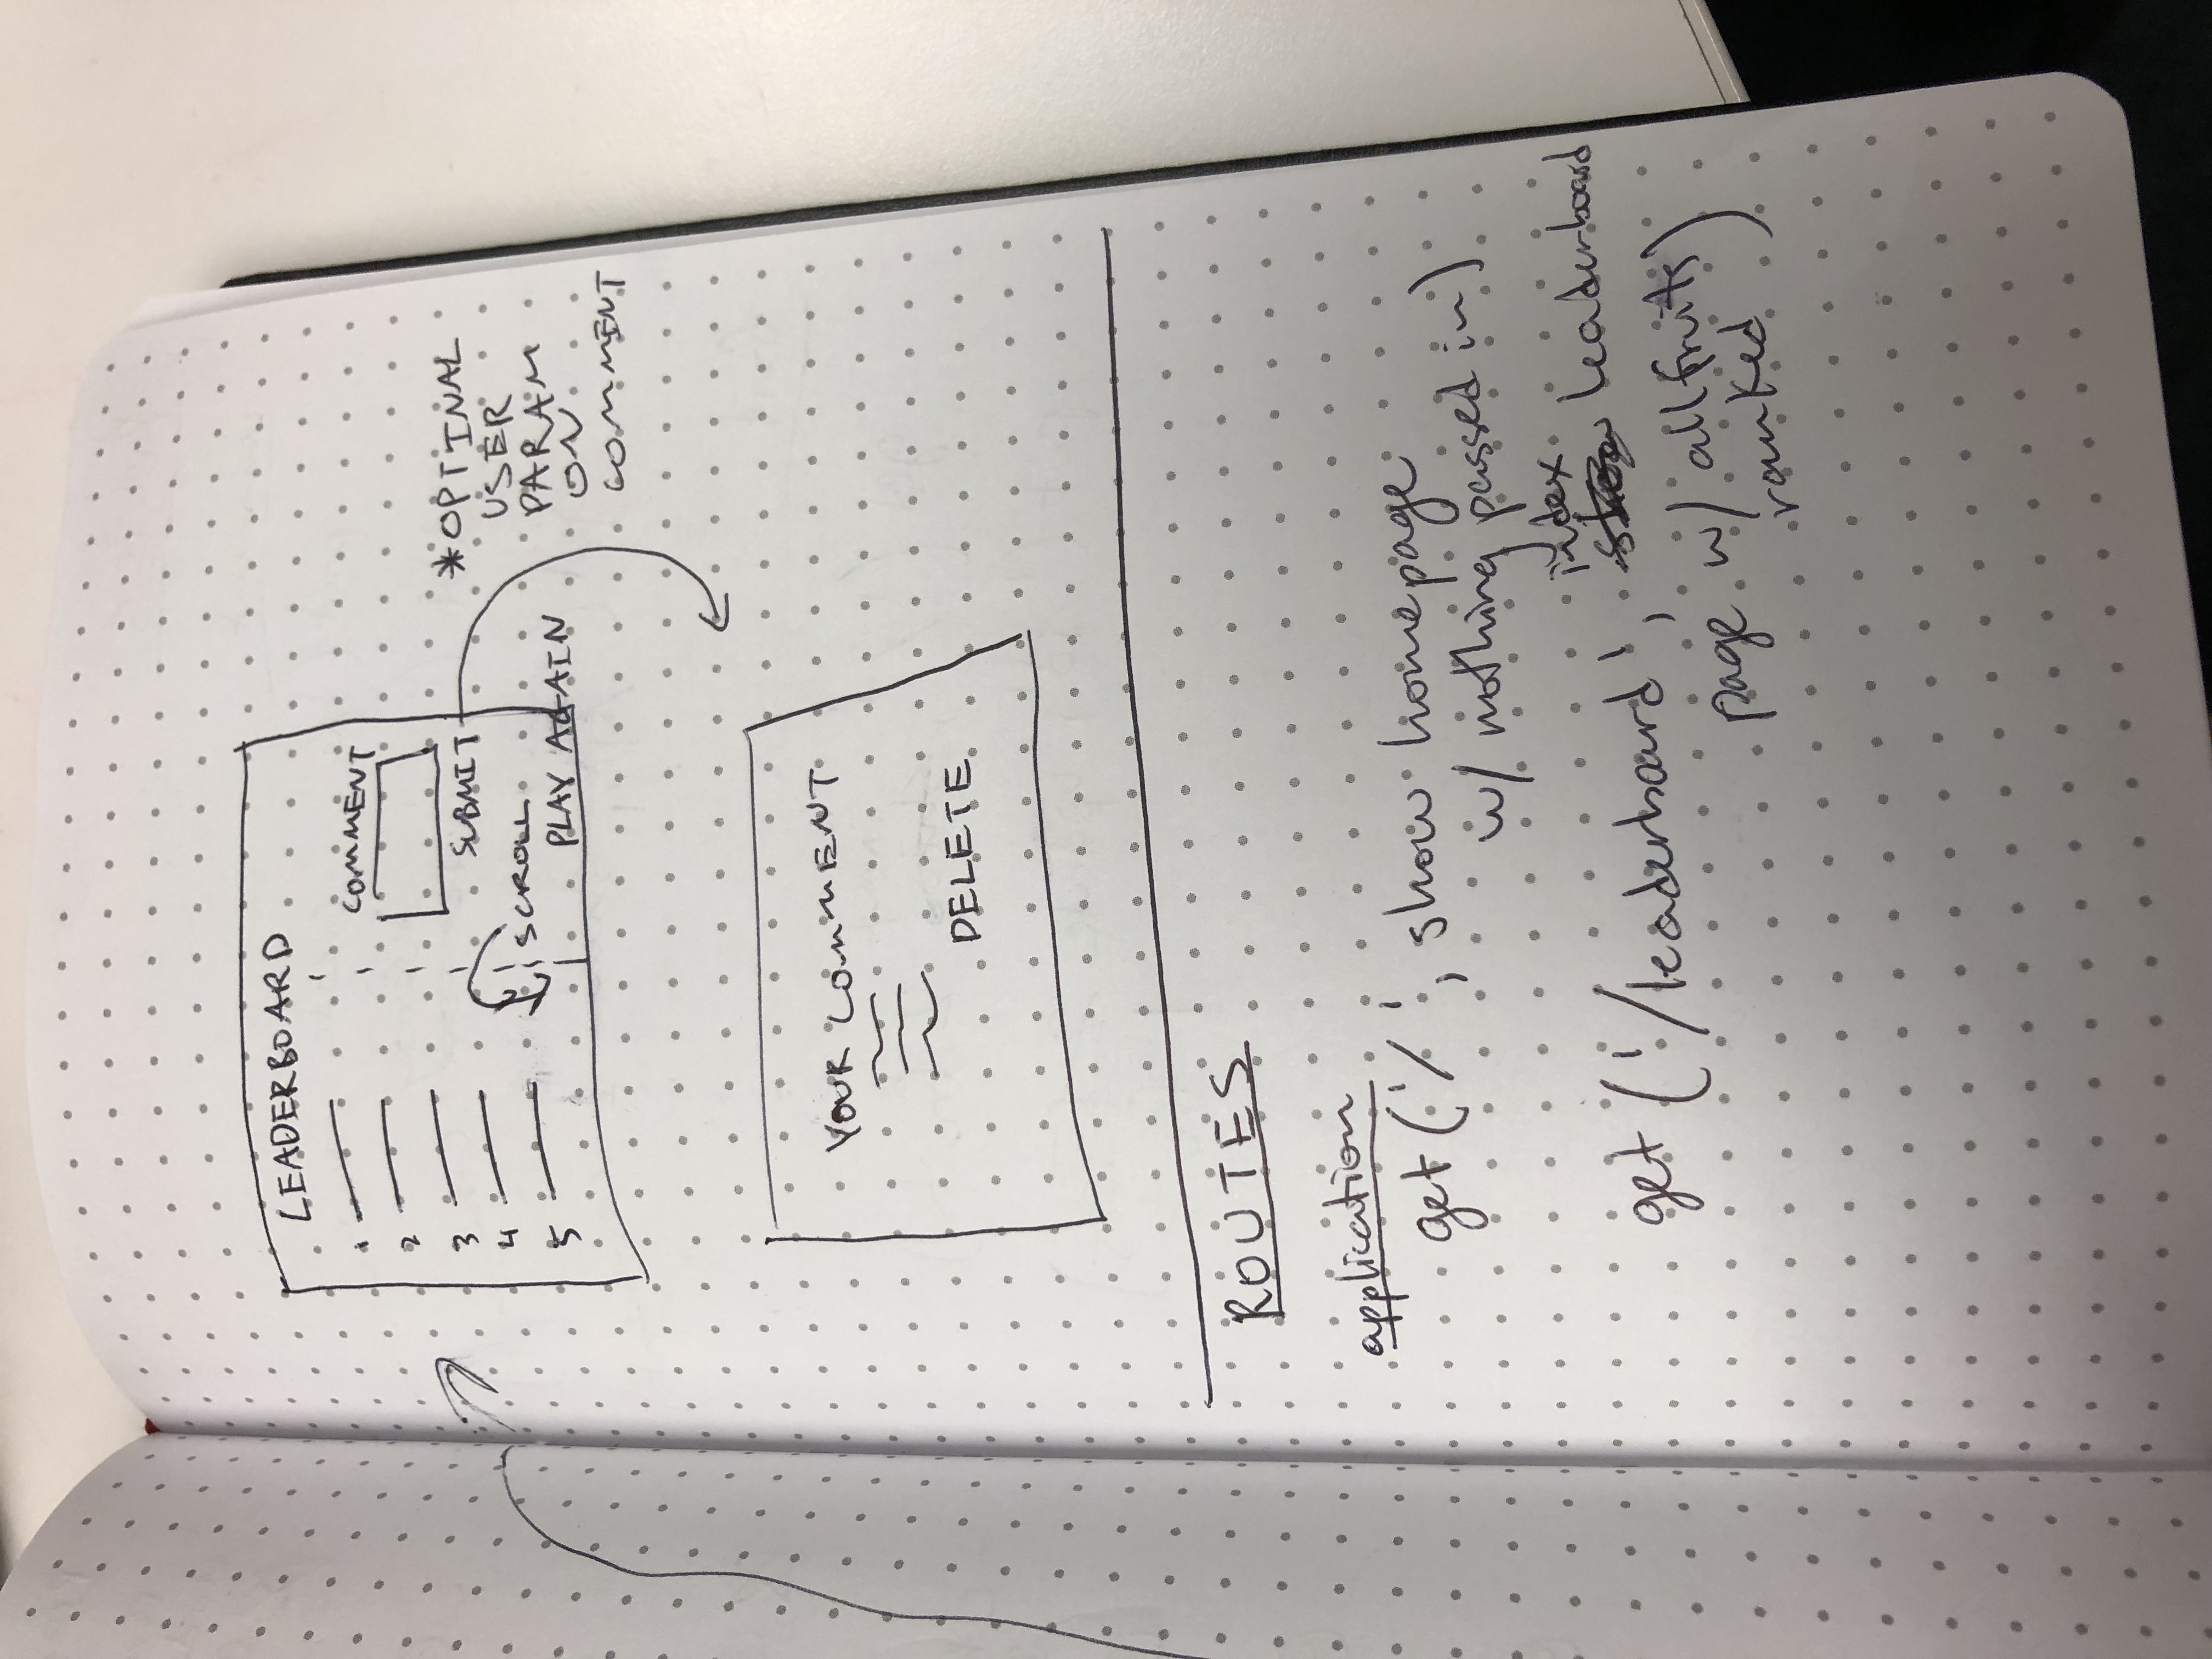 LEADERBOARD
1
2
3
4
5
COMMENT
SUBMIT
SCROLL
PLAY AGAIN
*OPTINAL
USER
PARAM
ON
COMMENT
YOUR COMMENT
DELETE
ROUTES
application
get('/', show homepage
w/ nothing passed in)
index
get('/leaderboard', show leaderboard
page w/ all fruits)
ranked